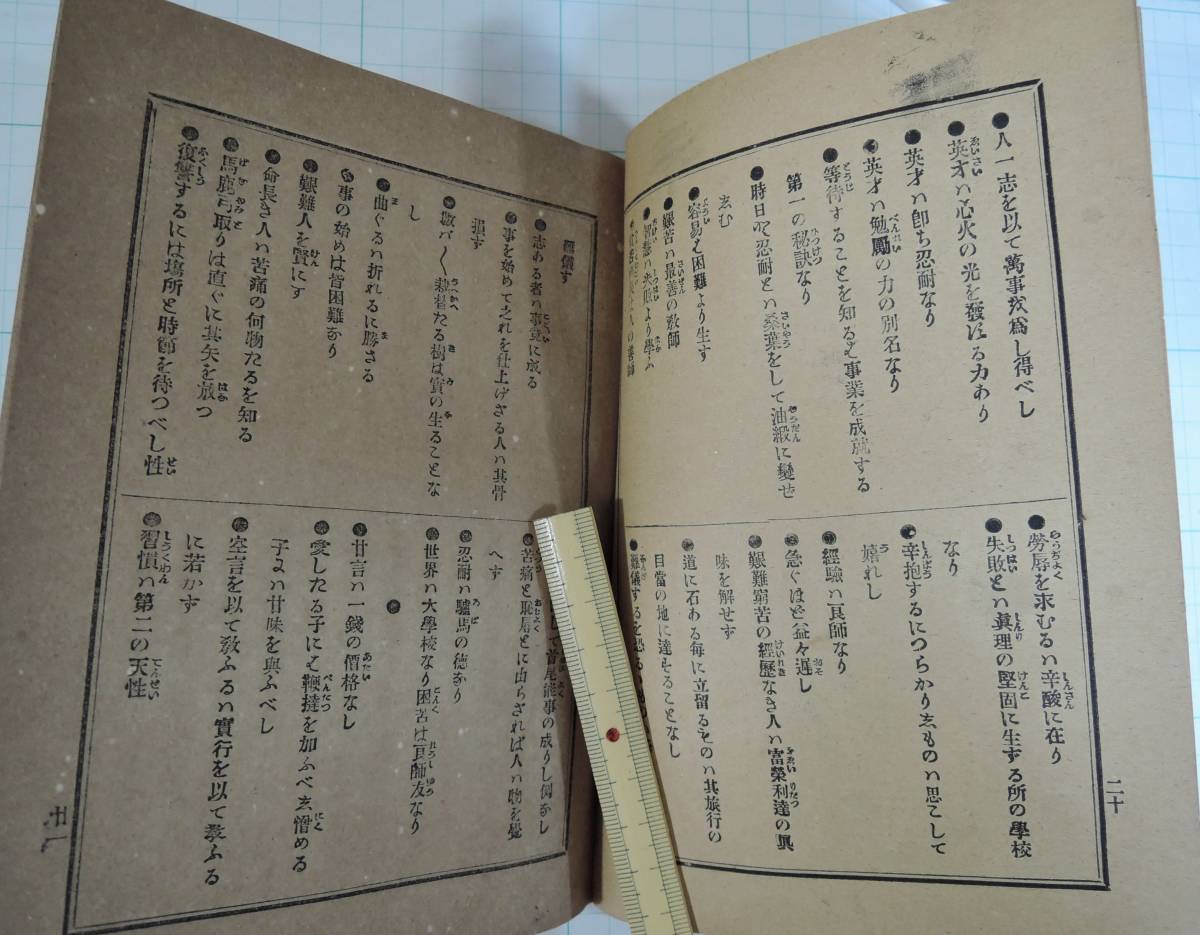 ●人一志を以て萬事を爲し得べし
●英才ハ心火の光を發する力あり
●英才ハ卽ち忍耐なり
●英才ハ勉勵の力の別名なり
●等待することを知るは事業を成就する
第一の秘訣なり
●時日と忍耐とハ桑葉をして油緞に變せ
しむ
●容易は困難より生す
●艱苦ハ最善の敎師
●智慧ハ失敗より學ふ
●勞辱を求むるハ辛酸に在り
●失敗とハ眞理の堅固に生する所の學校
なり
●辛抱するにつらかりしものハ思こして
嬉れし
●經驗ハ良師なり
●急ぐほど益々遲し
●艱難窮苦の經歷なき人ハ富榮利達の眞
味を解せず
●道に石ある每に立留るものハ其旅行の
目當の地に達することなし
●難儀するを恐るゝ
二十
難儀す
●志ある者ハ事竟に成る
●事を始めて之れを仕上げざる人ハ其骨
損す
●數バ〱栽替たる樹は實の生ることな
し
●曲ぐるハ折れるに勝さる
●事の始めは皆困難なり
●艱難人を賢にす
●命長き人ハ苦痛の何物たるを知る
●馬鹿弓取りは直ぐに其矢を放つ
●復讐するには塲所と時節を待つべし性
して首尾能事の成りし例なし
●苦痛と恥辱とに由らざれば人ハ物を覺
へず
●忍耐ハ驢馬の德なり
●世界ハ大學校なり困苦は良師友なり
●
●甘言ハ一錢の價格なし
●愛したる子にハ鞭撻を加ふべし憎める
子にハ甘味を與ふべし
●空言を以て敎ふるハ實行を以て敎ふる
に若かず
●習慣ハ第二の天性
廿一